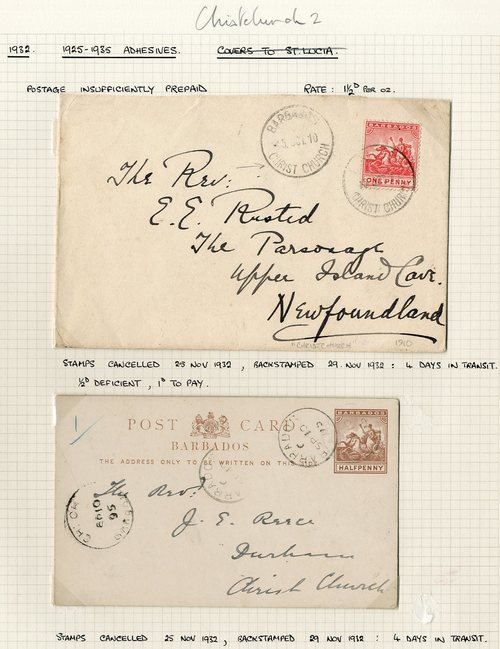 Christchurch 2
1932. 1925-1935 ADHESIVES. COVERS TO ST. LUCIA.
POSTAGE INSUFFICIENTLY PREPAID RATE: 1½D PER OZ.
BARBADOS
5 JUL 10
CHRIST CHURCH
BARBADOS
ONE PENNY
CHRIST CHURCH
The Rev:
E. E. Rusted
The Parsonage
Upper Island Cave.
Newfoundland
"CHRIST CHURCH" 1910
STAMPS CANCELLED 25 NOV 1932, BACKSTAMPED 29 NOV 1932: 4 DAYS IN TRANSIT.
½D DEFICIENT, 1D TO PAY.
POST CARD
BARBADOS
THE ADDRESS ONLY TO BE WRITTEN ON THIS
BARBADOS
HALFPENNY
BARBADOS
SP 13
The Rev:
J. E. Reece
Durham
Christ Church
STAMPS CANCELLED 25 NOV 1932, BACKSTAMPED 29 NOV 1932: 4 DAYS IN TRANSIT.